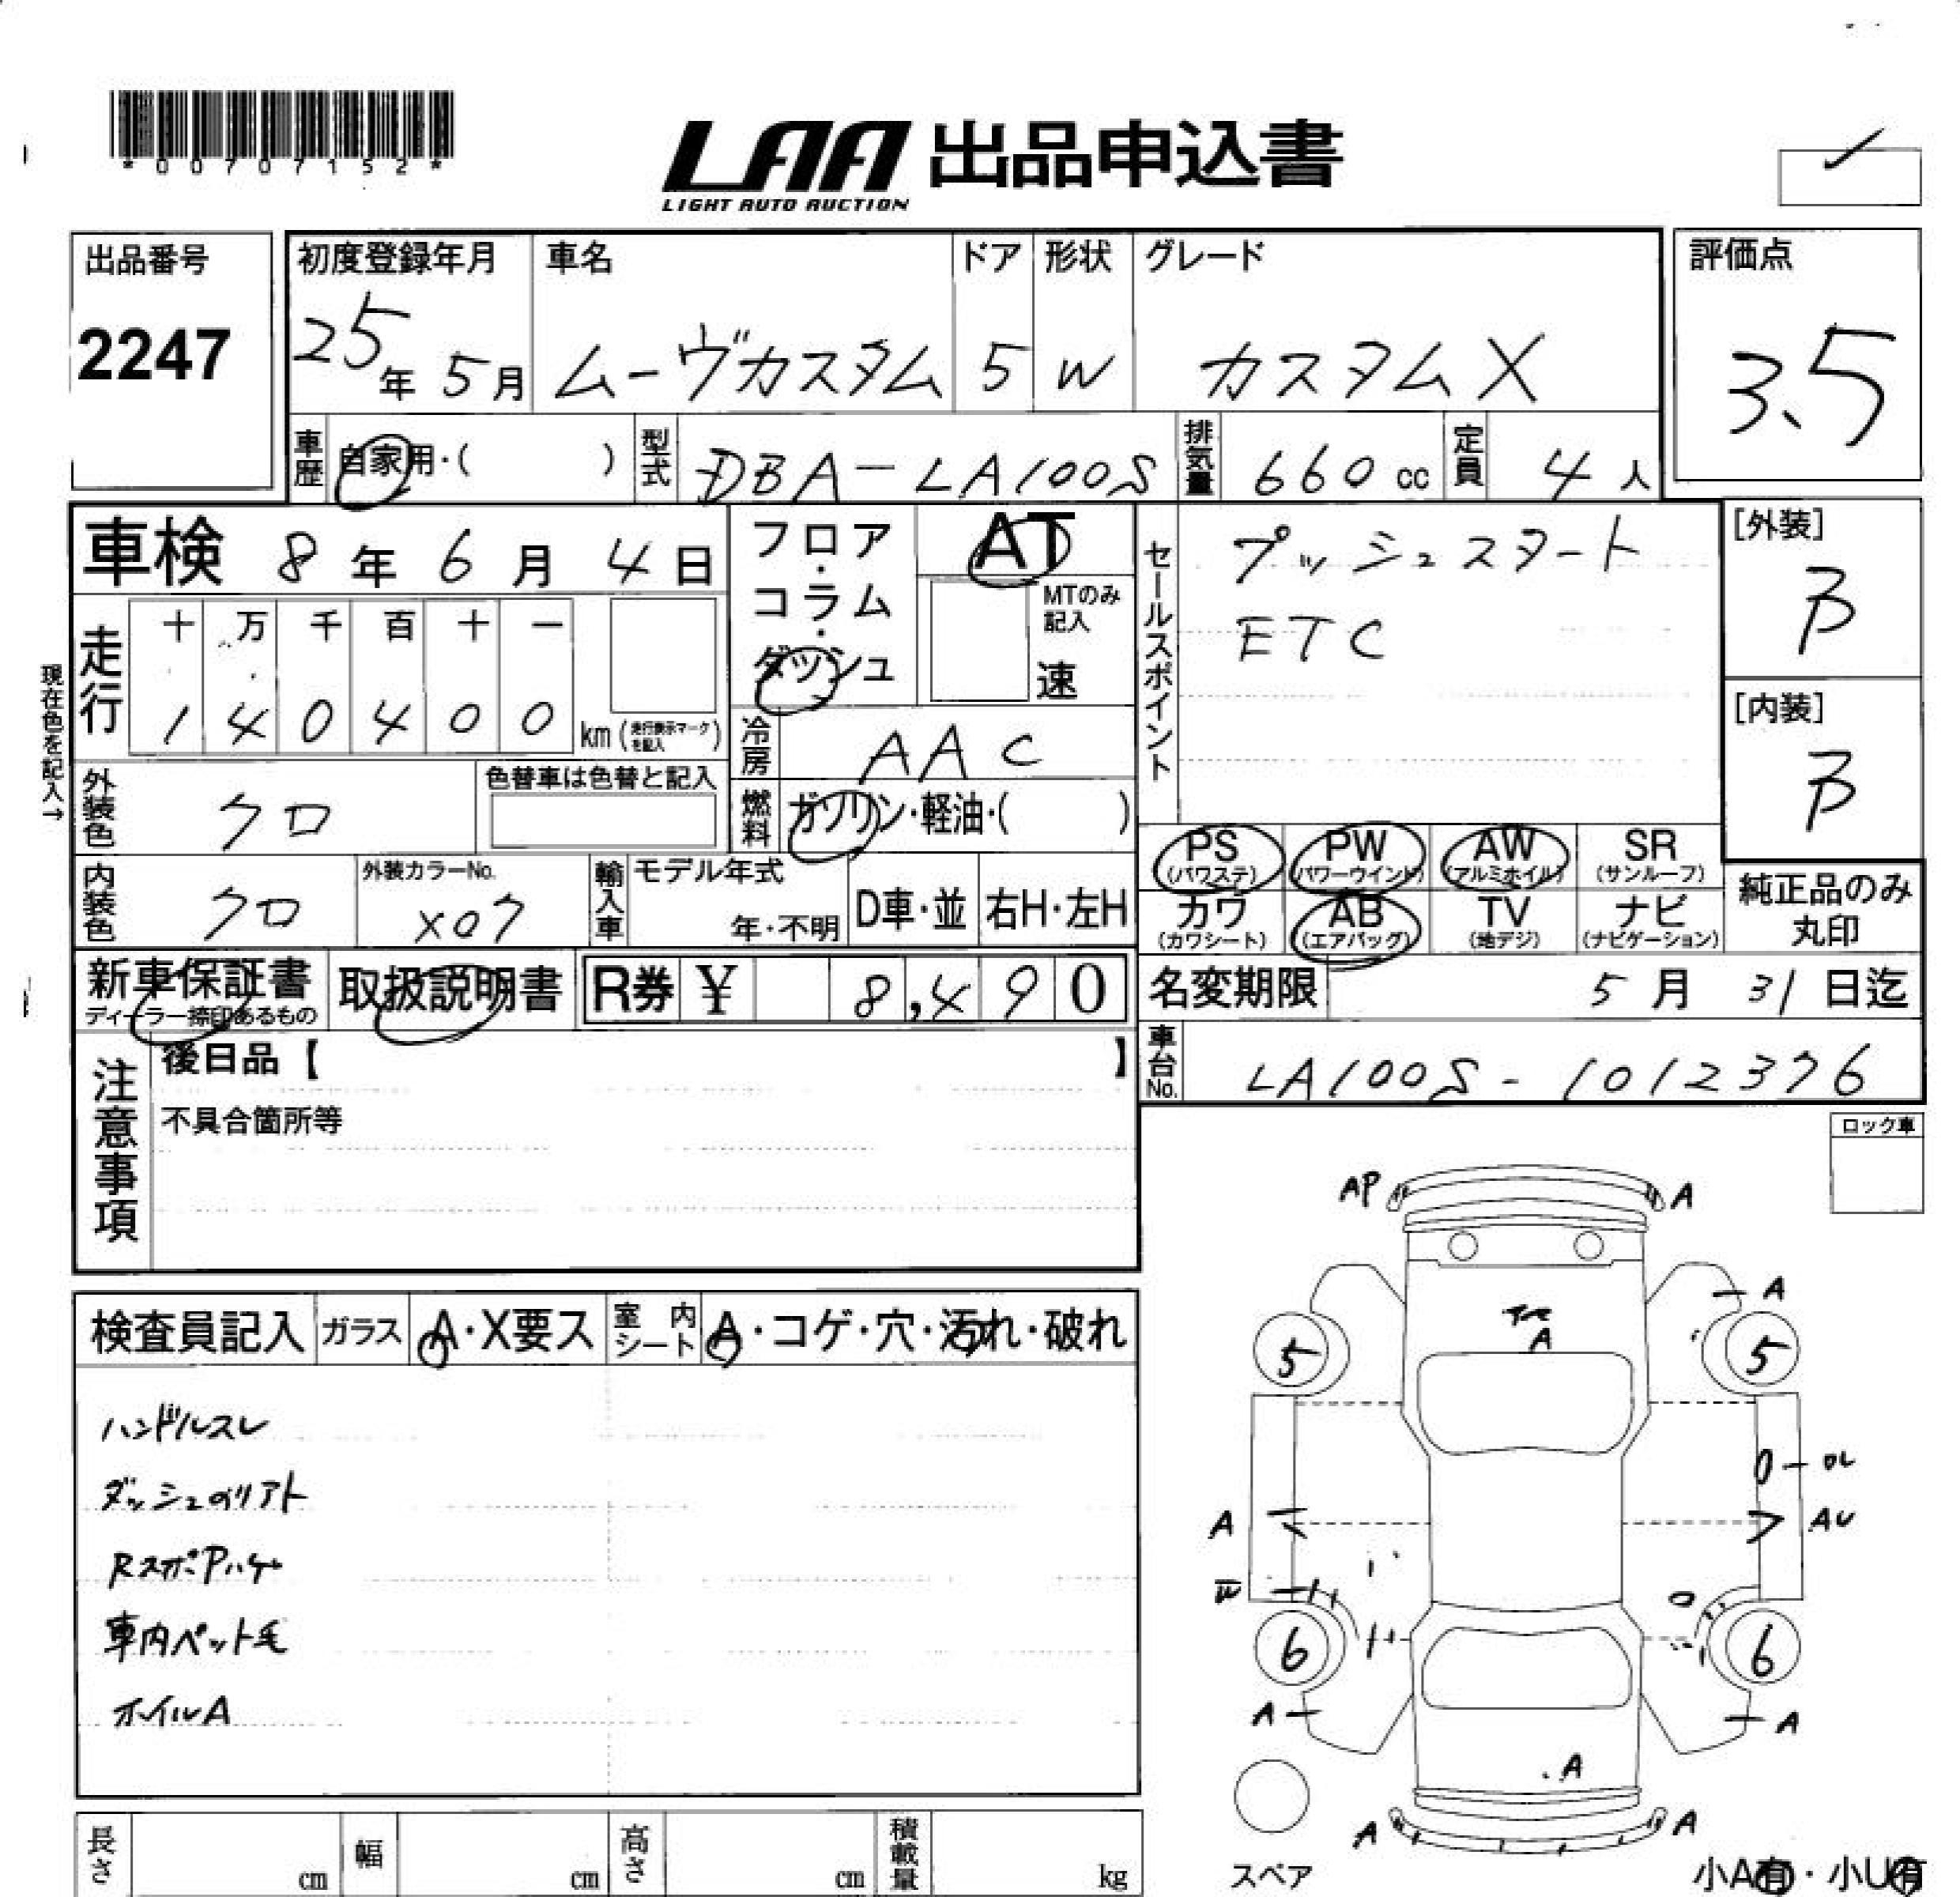 *00707152*
LAA 出品申込書
LIGHT AUTO AUCTION
出品番号
2247
初度登録年月 車名 ドア 形状 グレード
25年 5月 ムーヴカスタム 5 W カスタムX
評価点
3.5
車歴 自家用・( ) 型式 DBA-LA100S 排気量 660cc 定員 4人
車検 8年 6月 4日
フロア・コラム・ダッシュ
AT
MTのみ記入
速
セールスポイント
プッシュスタート
ETC
[外装]
B
[内装]
B
現在色を記入→
走行 十 万 千 百 十 一
1 4 0 4 0 0 km (走行表示マークを記入)
冷房 AAC
外装色 クロ 色替車は色替と記入
燃料 ガソリン・軽油・( )
内装色 クロ 外装カラーNo. X07
輸入車 モデル年式 年・不明 D車・並 右H・左H
PS (パワステ) PW (パワーウインド) AW (アルミホイル) SR (サンルーフ)
カワ (カワシート) AB (エアバッグ) TV (地デジ) ナビ (ナビゲーション)
純正品のみ丸印
新車保証書 ディーラー捺印あるもの 取扱説明書 R券 ¥ 8,490
名変期限 5月 31日迄
車台No. LA100S-1012376
注意事項
後日品【 】
不具合箇所等
ロック車
検査員記入 ガラス A・X要ス 室内シート A・コゲ・穴・汚れ・破れ
ハンドルスレ
ダッシュのリアト
RスポPハゲ
車内ペット毛
ホイルA
AP A
A
A
5 5
A AU
W
6 6
A A
A
A A
スペア
小A有・小U有
長さ cm 幅 cm 高さ cm 積載量 kg